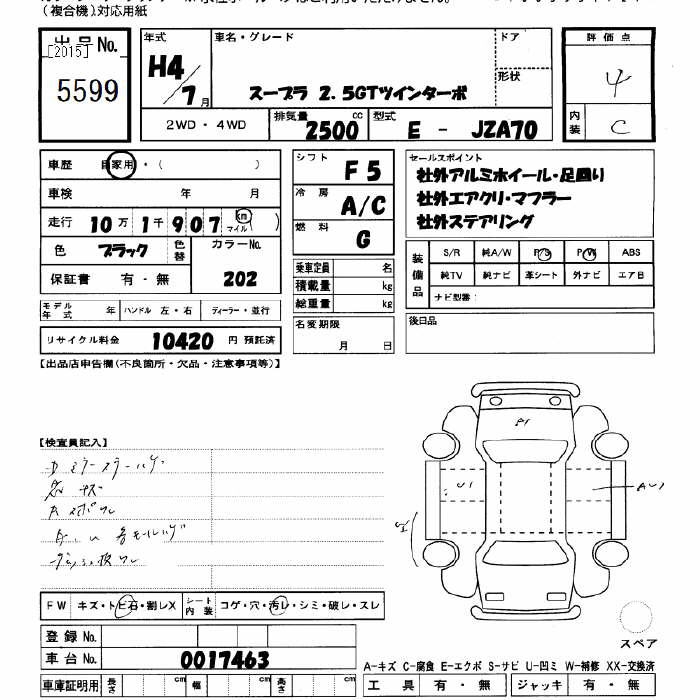 (複合機)対応用紙
出品No.
[2015]
5599
年式
H4/7月
車名・グレード
スープラ 2.5GTツインターボ
ドア
形状
評価点
4
内装
C
2WD・4WD
排気量
2500 cc
型式
E - JZA70
車歴 自家用・( )
車検 年 月
走行 10万1千907 km マイル( )
色 ブラック 色替
カラーNo.
202
保証書 有・無
シフト F5
冷房 A/C
燃料 G
セールスポイント
社外アルミホイール・足回り
社外エアクリ・マフラー
社外ステアリング
乗車定員 名
積載量 kg
総重量 kg
装備品
S/R 純A/W P/S P/W ABS
純TV 純ナビ 革シート 外ナビ エアB
ナビ型番:
モデル年式 年 ハンドル 左・右 ディーラー・並行
名変期限
月 日
後日品
リサイクル料金 10420 円 預託済
【出品店申告欄(不良箇所・欠品・注意事項等)】
【検査員記入】
A1
U1
AU1
FW キズ・トビ石・割レX シート内装 コゲ・穴・汚レ・シミ・破レ・スレ
登録No.
車台No. 0017463
車庫証明用 長さ cm 幅 cm 高さ cm
スペア
A-キズ C-腐食 E-エクボ S-サビ U-凹ミ W-補修 XX-交換済
工具 有・無 ジャッキ 有・無